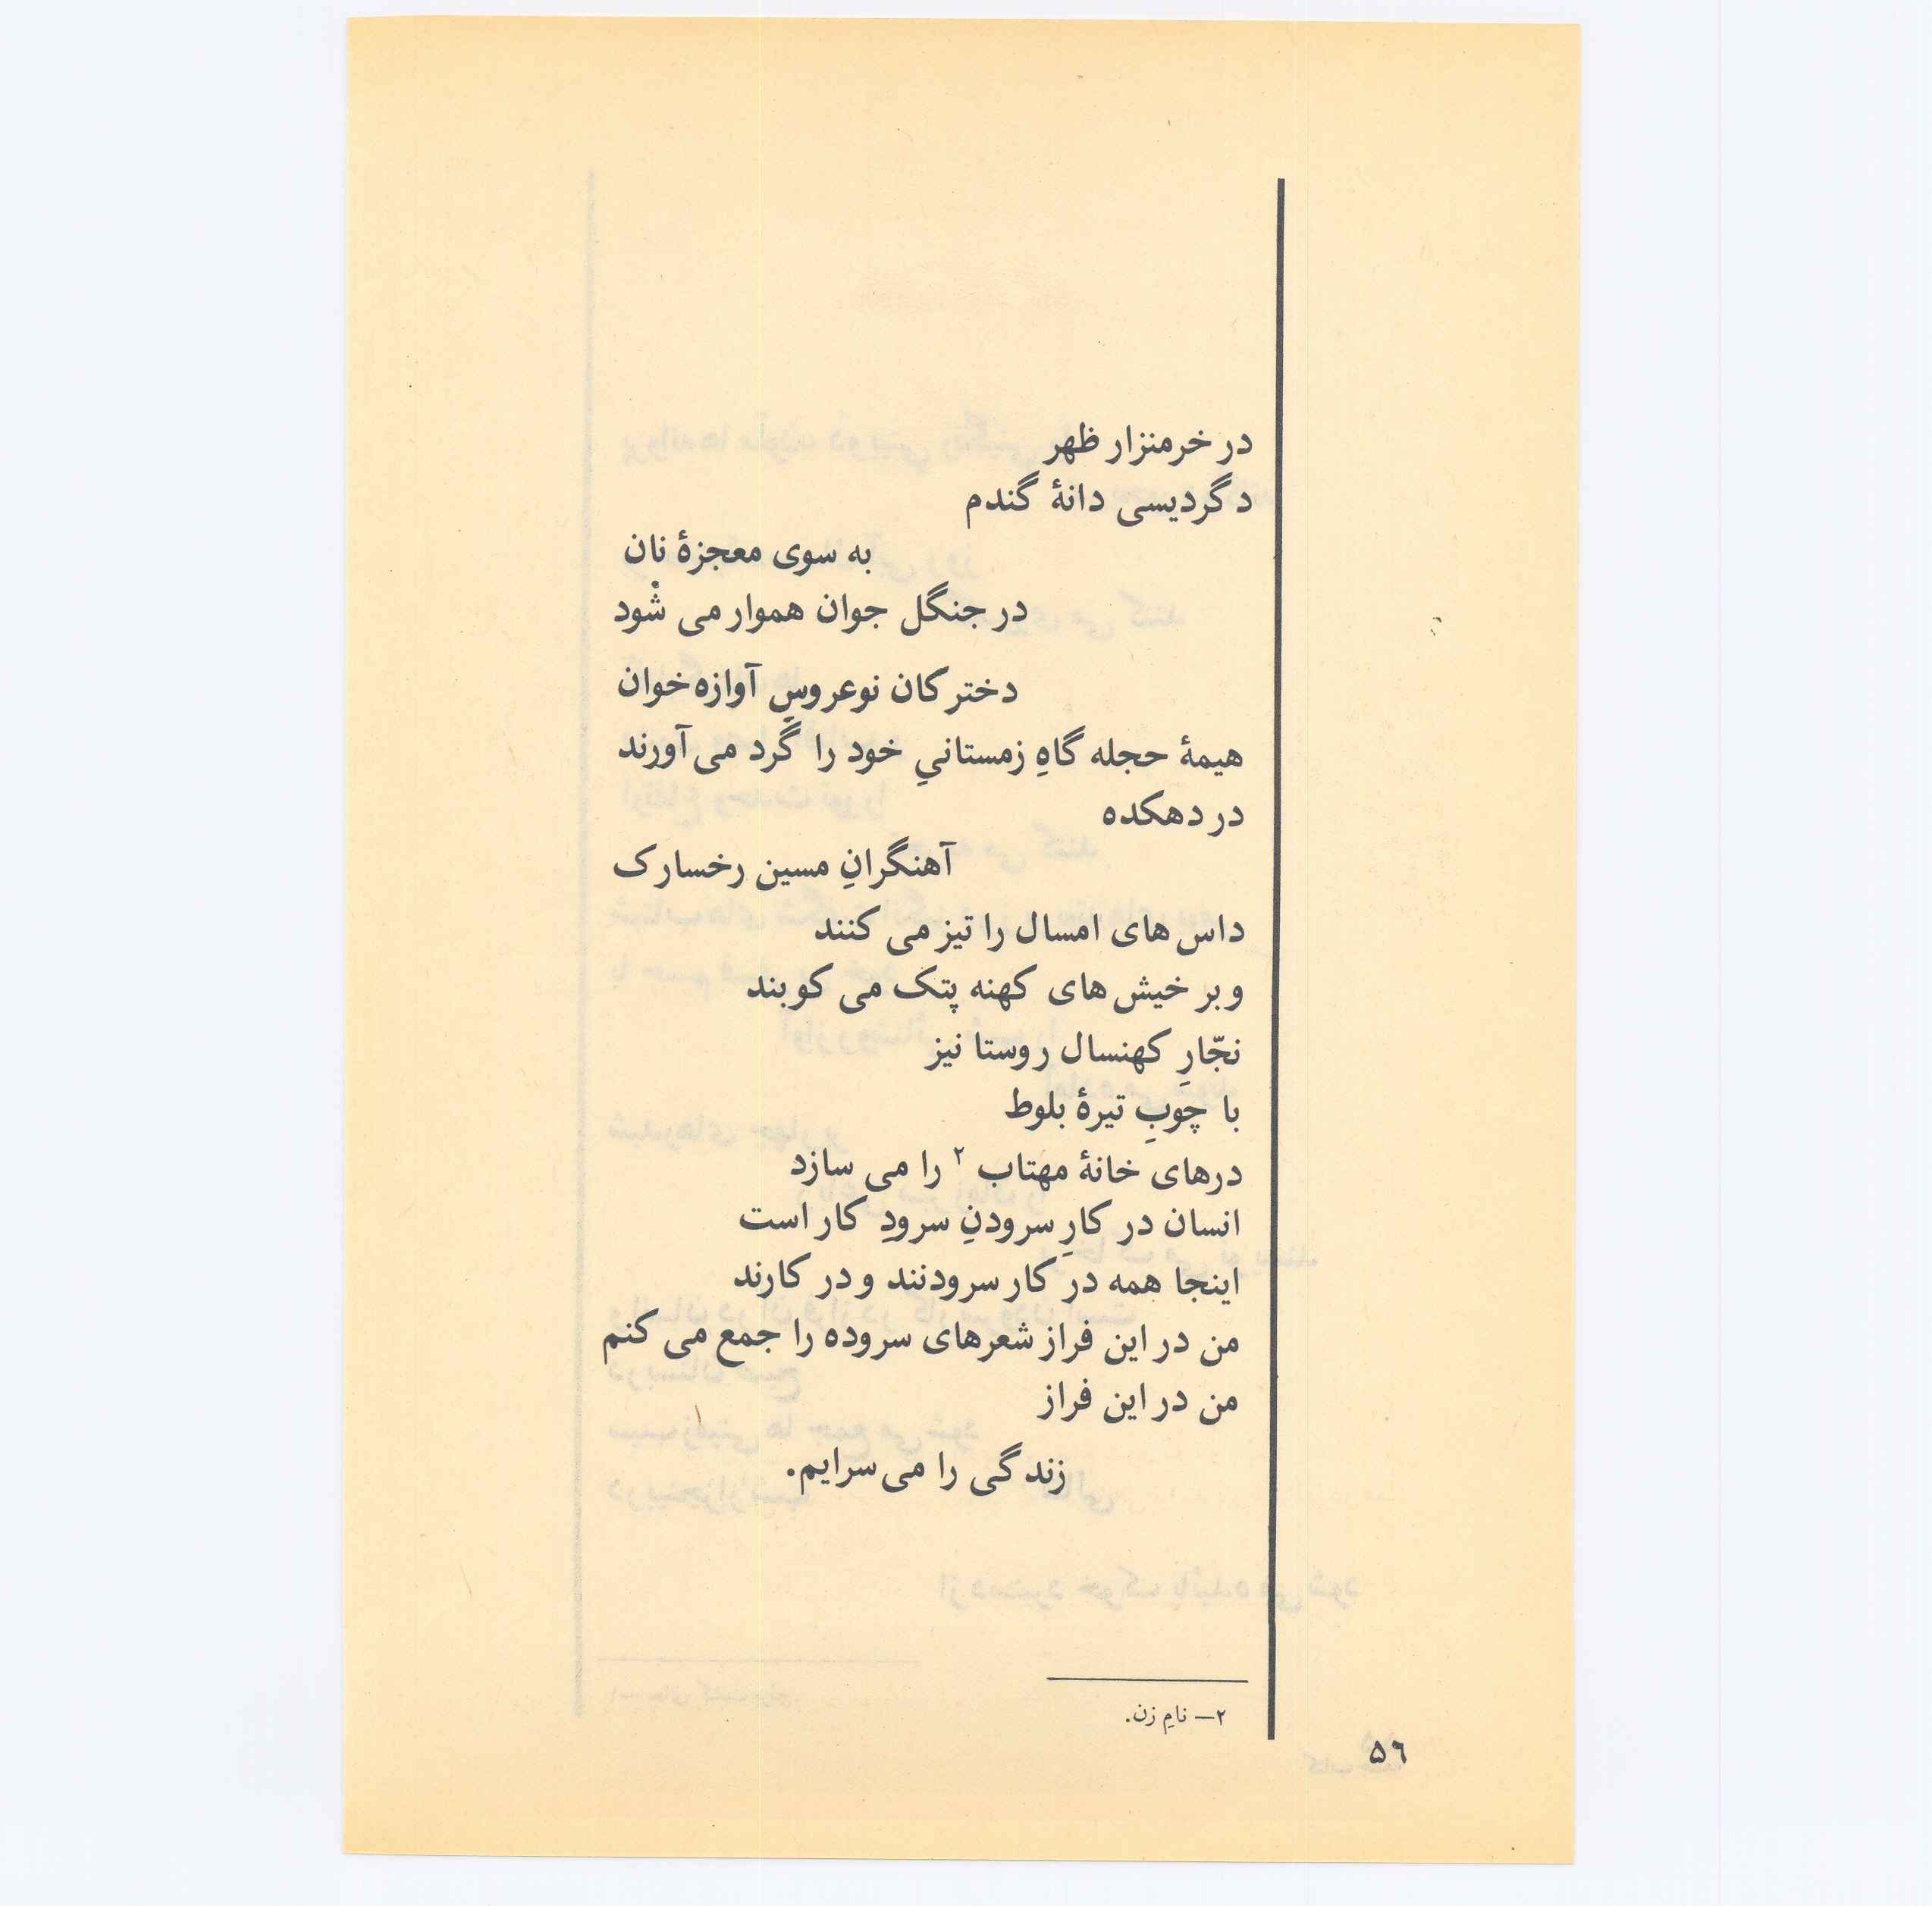 در خرمنزار ظهر
دگردیسی دانهٔ گندم
به سوی معجزهٔ نان
در جنگل جوان هموار می شود
دخترکان نوعروسِ آوازه‌خوان
هیمهٔ حجله گاهِ زمستانیِ خود را گرد می آورند
در دهکده
آهنگرانِ مسین رخسارک
داس های امسال را تیز می کنند
و بر خیش های کهنه پتک می کوبند
نجّارِ کهنسال روستا نیز
با چوبِ تیرهٔ بلوط
درهای خانهٔ مهتاب ۲ را می سازد
انسان در کارِ سرودنِ سرودِ کار است
اینجا همه در کار سرودنند و در کارند
من در این فراز شعرهای سروده را جمع می کنم
من در این فراز
زندگی را می سرایم.
۲– نامِ زن.
۵۶